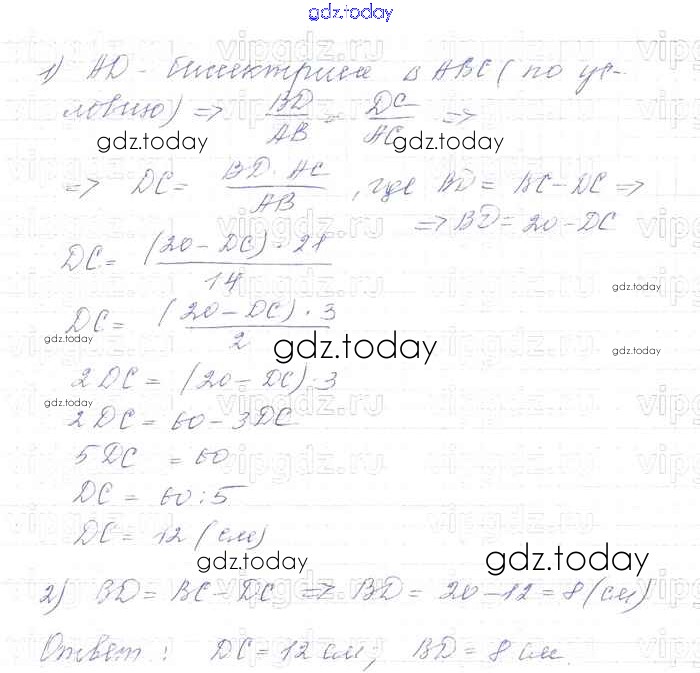 gdz.today
1) AD - биссектриса Δ ABC (по ус-
ловию) => BD/AB = DC/AC =>
gdz.today gdz.today
=> DC = BD · AC / AB, где BD = BC - DC =>
=> BD = 20 - DC
DC = (20 - DC) · 21 / 14
gdz.today
DC = (20 - DC) · 3 / 2
gdz.today
gdz.today
2 DC = (20 - DC) · 3
gdz.today
gdz.today
2 DC = 60 - 3 DC
5 DC = 60
DC = 60 : 5
DC = 12 (см)
gdz.today
gdz.today
2) BD = BC - DC => BD = 20 - 12 = 8 (см)
Ответ: DC = 12 см; BD = 8 см.
vipgdz.ru